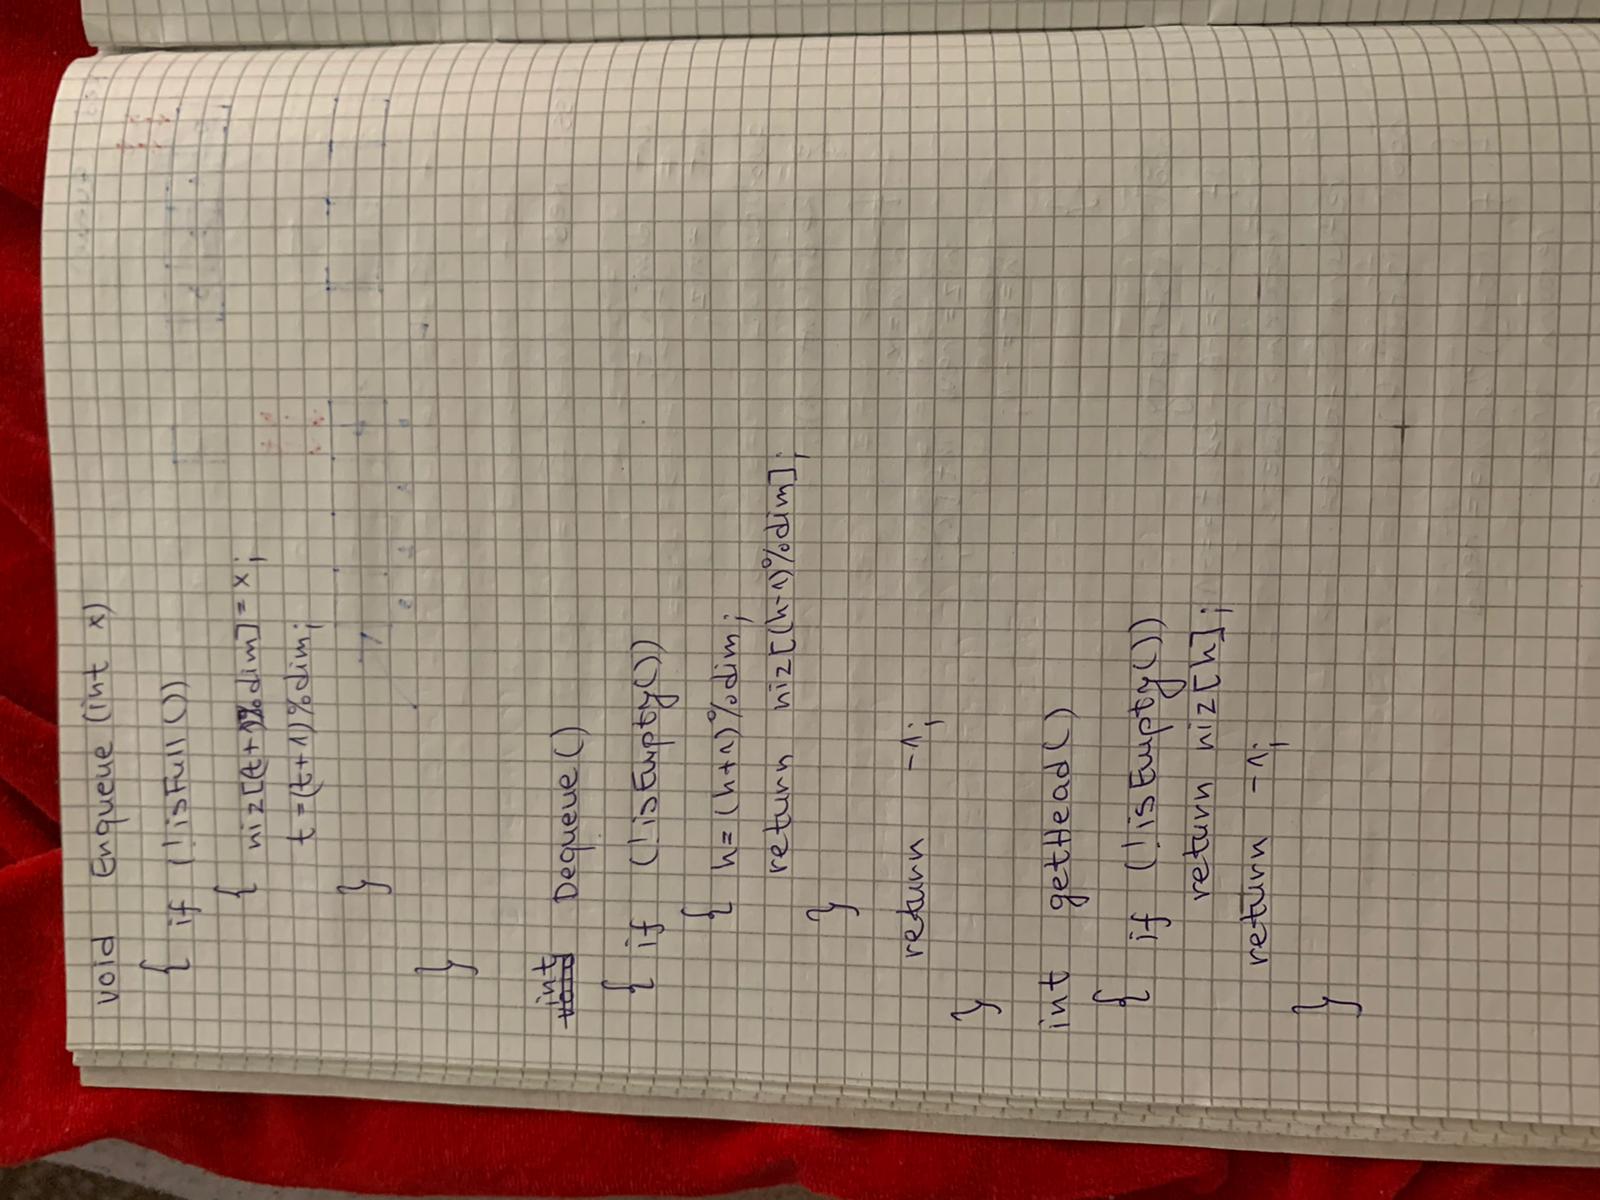 void Enqueue (int x)
{ if (!isFull())
{ niz[(t+1)%dim]=x;
t=(t+1)%dim;
}
}
int Dequeue()
{ if (!isEmpty())
{ h=(h+1)%dim;
return niz[(h-1)%dim];
}
return -1;
}
int getHead()
{ if (!isEmpty())
return niz[h];
return -1;
}